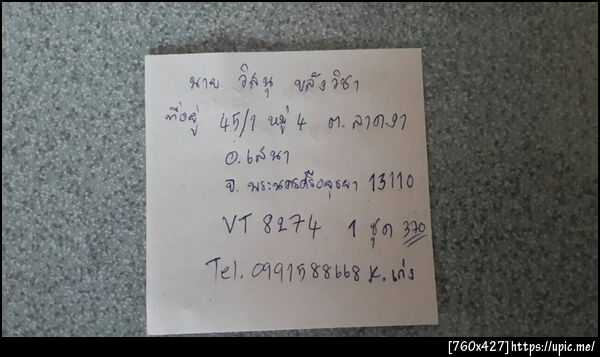 นาย วิสนุ ขลังวิชา
ที่อยู่ 45/1 หมู่ 4 ต. ลาดงา
อ.เสนา
จ. พระนครศรีอยุธยา 13110
VT 8274 1 ชุด 370
Tel. 0991588668 K. เก่ง
[760x427] https://upic.me/